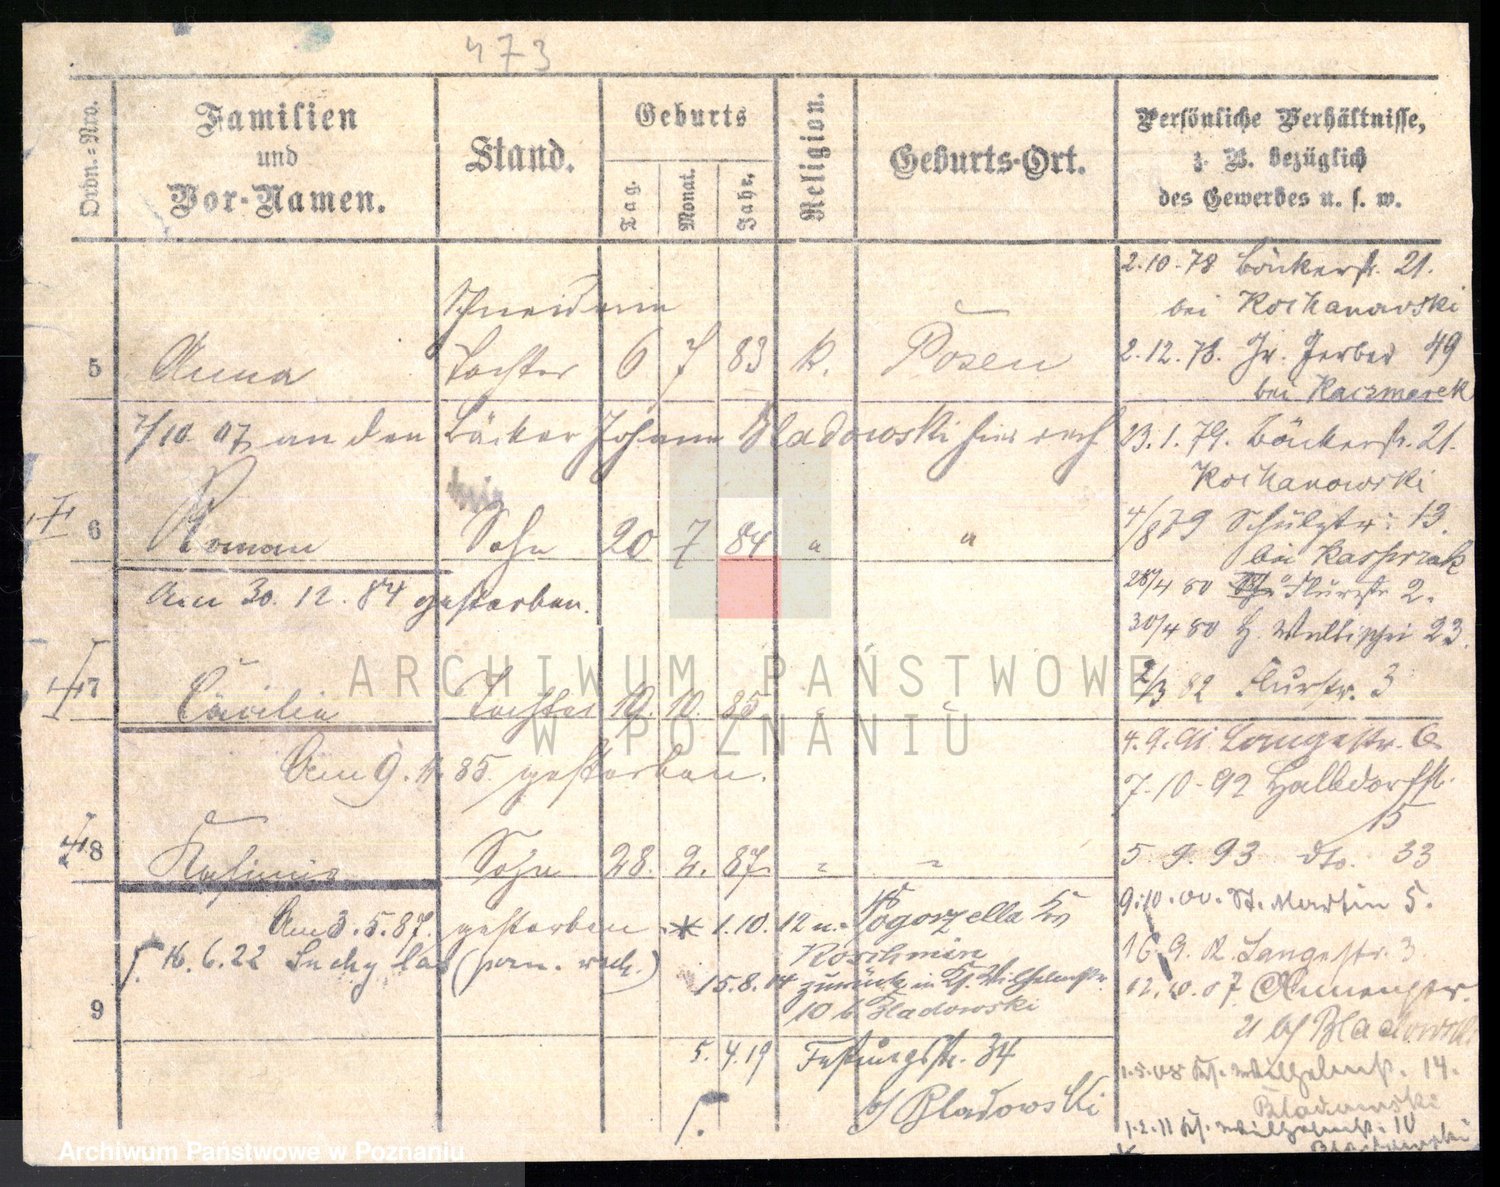 473
Ordn.-Nro.
Familien
und
Vor-Namen.
Stand.
Geburts
Tag.
Monat.
Jahr.
Religion.
Geburts-Ort.
Persönliche Verhältnisse,
z. B. bezüglich
des Gewerbes u. s. w.
Schneiderin
5 Anna Tochter 6 7 83 k. Posen
7/10 07 an den Bäcker Johann Bladowski hier verh.
6 Roman Sohn 20 7 84 " "
Am 30. 12. 84 gestorben.
7 Cäcilia Tochter 19. 10. 85 "
Am 9. 11. 85. gestorben.
8 Kasimir Sohn 28. 2. 87. " "
Am 3. 5. 87. gestorben
16. 6. 22
1. 10. 12 n. Pogorzella Krs
Koschmin
15. 8. 14 zurück in Kl. Wilhelmstr.
10 b. Bladowski
9
5. 4. 19 Festungsstr. 34
b/ Bladowski
2. 10. 78 Bäckerstr. 21.
bei Kochanowski
2. 12. 78. Gr. Gerber 49
bei Kaczmarek
23. 1. 79. Bäckerstr. 21.
Kochanowski
4/8 79 Schützstr: 13.
bei Kasprzak
28/4 80 Flurstr 2.
30/4 80 H. Wallischei 23.
2/3 82 Flurstr. 3
4. 9. 91 Langestr. 6
7. 10. 92 Halbdorfstr.
15
5 9. 93 dto. 33
9. 10. 00. St. Martin 5.
16. 9. Langestr. 3
12. 10. 07.
b/ Bladowski
1. 5. 08 Kl. Wilhelmstr. 14.
Bladowski
1. 2. 11 Kl. Wilhelmstr. 10
Bladowski
ARCHIWUM PAŃSTWOWE
W POZNANIU
Archiwum Państwowe w Poznaniu